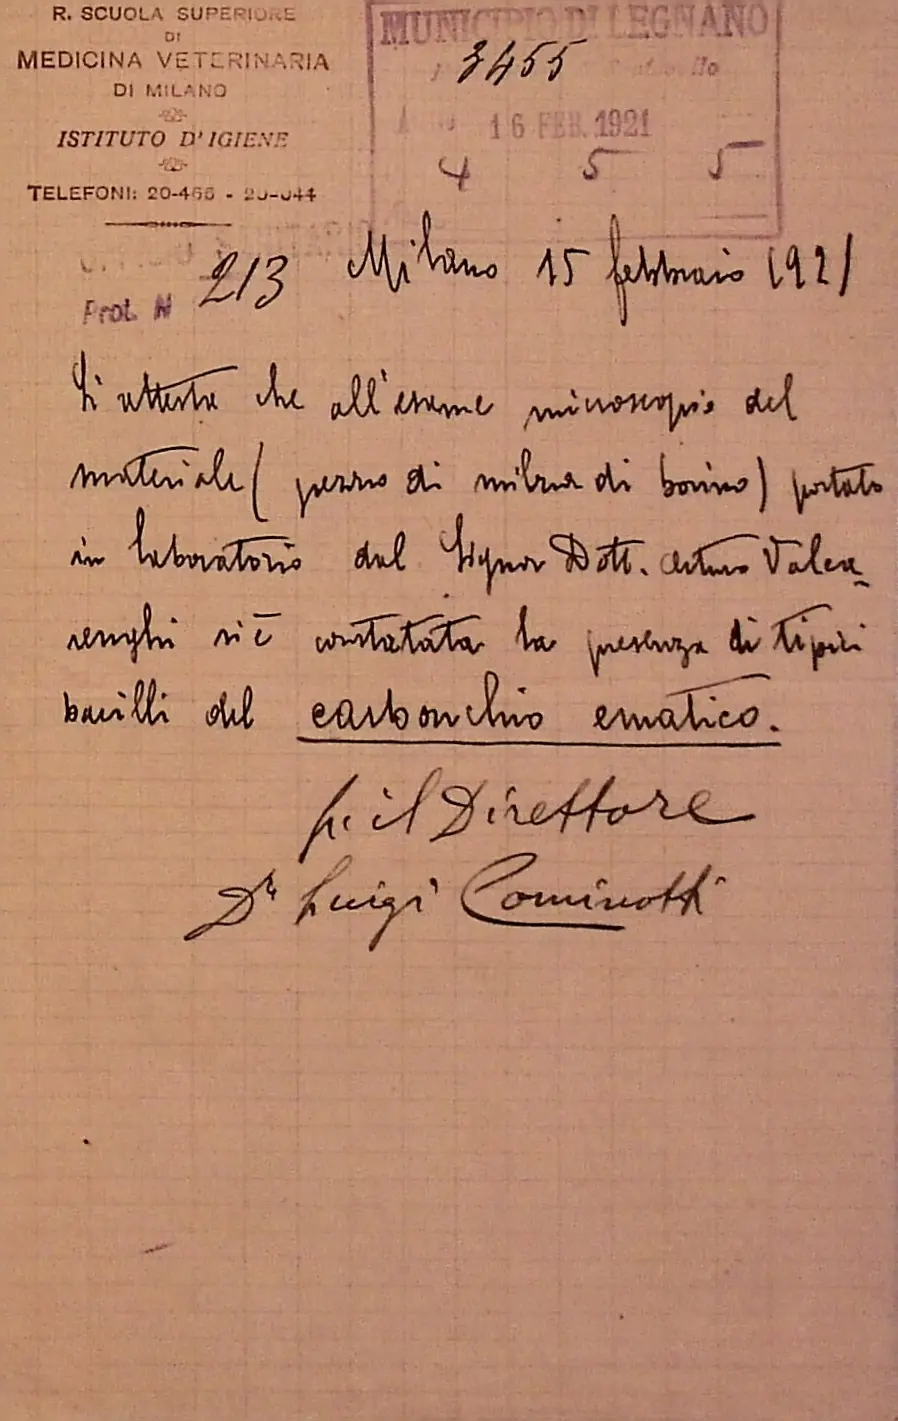 R. SCUOLA SUPERIORE
DI
MEDICINA VETERINARIA
DI MILANO
ISTITUTO D'IGIENE
TELEFONI: 20-466 - 20-044
MUNICIPIO DI LEGNANO
3455
16 FEB. 1921
4 5 5
Prot. N 213
Milano 15 febbraio 1921
Si attesta che all'esame microscopio del
materiale (pezzo di milza di bovino) portato
in laboratorio dal Signor Dott. Arturo Valca-
renghi si è constatata la presenza di tipici
bacilli del carbonchio ematico.
per il Direttore
Dr Luigi Cominotti